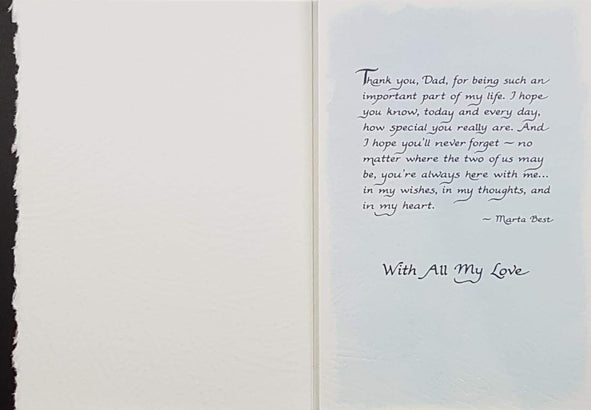 Thank you, Dad, for being such an
important part of my life. I hope
you know, today and every day,
how special you really are. And
I hope you'll never forget ~ no
matter where the two of us may
be, you're always here with me...
in my wishes, in my thoughts, and
in my heart.
~ Marta Best
With All My Love